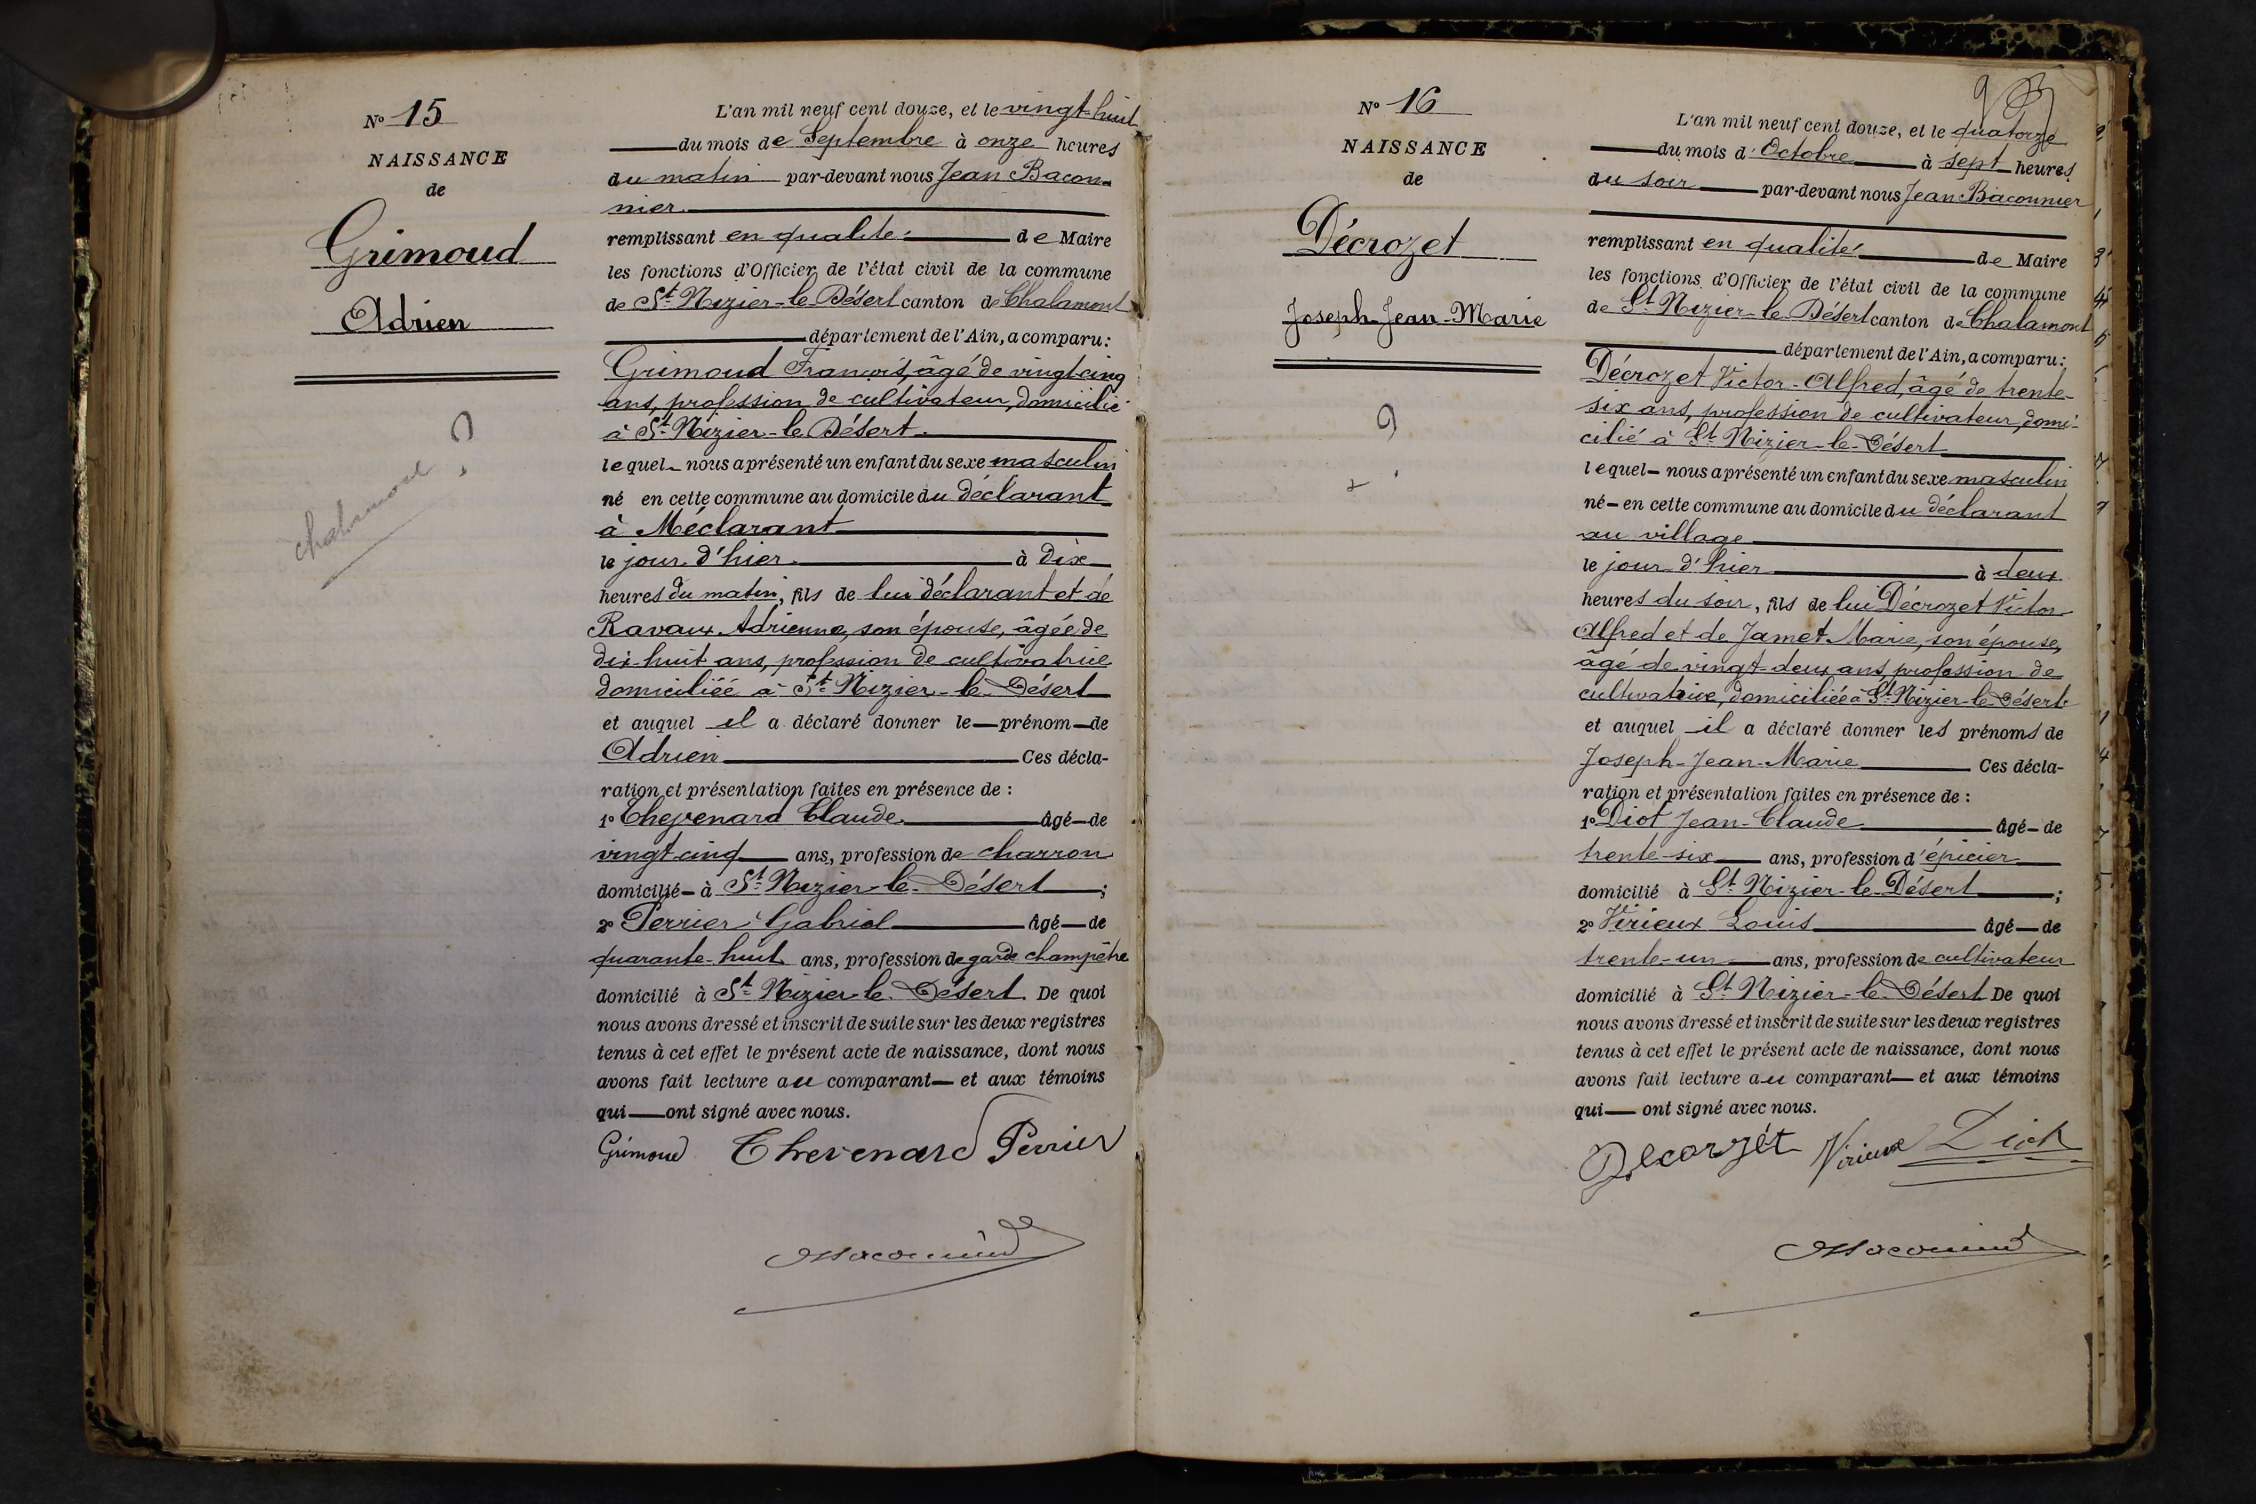 Nº 15
NAISSANCE
de
Grimoud
Adrien
chalamont ?
L'an mil neuf cent douze, et le vingt-huit
du mois de Septembre à onze heures
du matin par-devant nous Jean Bacon-
nier.
remplissant en qualité de Maire
les fonctions d'Officier de l'état civil de la commune
de St Nizier-le-Désert canton de Chalamont
département de l'Ain, a comparu :
Grimoud François, âgé de vingt-cinq
ans, profession de cultivateur, domicilié
à St Nizier-le-Désert.
lequel nous a présenté un enfant du sexe masculin
né en cette commune au domicile du déclarant
à Méclarant
le jour d'hier à dix
heures du matin, fils de lui déclarant et de
Ravaux Adrienne, son épouse, âgée de
dix-huit ans, profession de cultivatrice
domiciliée à St Nizier-le-Désert
et auquel il a déclaré donner le prénom de
Adrien Ces décla-
ration et présentation faites en présence de :
1º Chevenard Claude. âgé de
vingt-cinq ans, profession de charron
domicilié à St Nizier-le-Désert ;
2º Perrier Gabriel âgé de
quarante-huit ans, profession de garde champêtre
domicilié à St Nizier-le-Désert. De quoi
nous avons dressé et inscrit de suite sur les deux registres
tenus à cet effet le présent acte de naissance, dont nous
avons fait lecture au comparant et aux témoins
qui ont signé avec nous.
Grimoud Chevenard Perrier
Nº 16
NAISSANCE
de
Décrozet
Joseph-Jean-Marie
?
L'an mil neuf cent douze, et le quatorze
du mois d'Octobre à sept heures
du soir par-devant nous Jean Baconnier
remplissant en qualité de Maire
les fonctions d'Officier de l'état civil de la commune
de St Nizier-le-Désert canton de Chalamont
département de l'Ain, a comparu :
Décrozet Victor-Alfred, âgé de trente-
six ans, profession de cultivateur, domi-
cilié à St Nizier-le-Désert
lequel nous a présenté un enfant du sexe masculin
né en cette commune au domicile du déclarant
au village
le jour d'hier à deux
heures du soir, fils de lui Décrozet Victor
Alfred et de Jamet Marie, son épouse,
âgé de vingt-deux ans, profession de
cultivatrice, domiciliée à St Nizier-le-Désert
et auquel il a déclaré donner les prénoms de
Joseph-Jean-Marie Ces décla-
ration et présentation faites en présence de :
1º Diot Jean-Claude âgé de
trente-six ans, profession d'épicier
domicilié à St Nizier-le-Désert ;
2º Virieux Louis âgé de
trente-un ans, profession de cultivateur
domicilié à St Nizier-le-Désert De quoi
nous avons dressé et inscrit de suite sur les deux registres
tenus à cet effet le présent acte de naissance, dont nous
avons fait lecture au comparant et aux témoins
qui ont signé avec nous.
Decorzét Virieux Diot